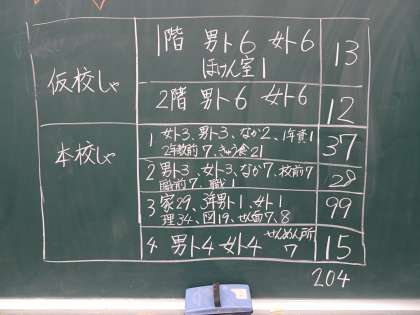 仮校しゃ
1階 男ト6 女ト6 13
ほけん室1
2階 男ト6 女ト6 12
本校しゃ
1 女ト3、男ト3、なか2、1年費1 37
2年教前7、きゅう食21
2 男ト3、女ト3、なが7、校前7 28
職前7、職1
3 家29、洋男ト1、女ト1 99
理34、図19、せん面7、8
4 男ト4 女ト4 せんめん所 15
7
204